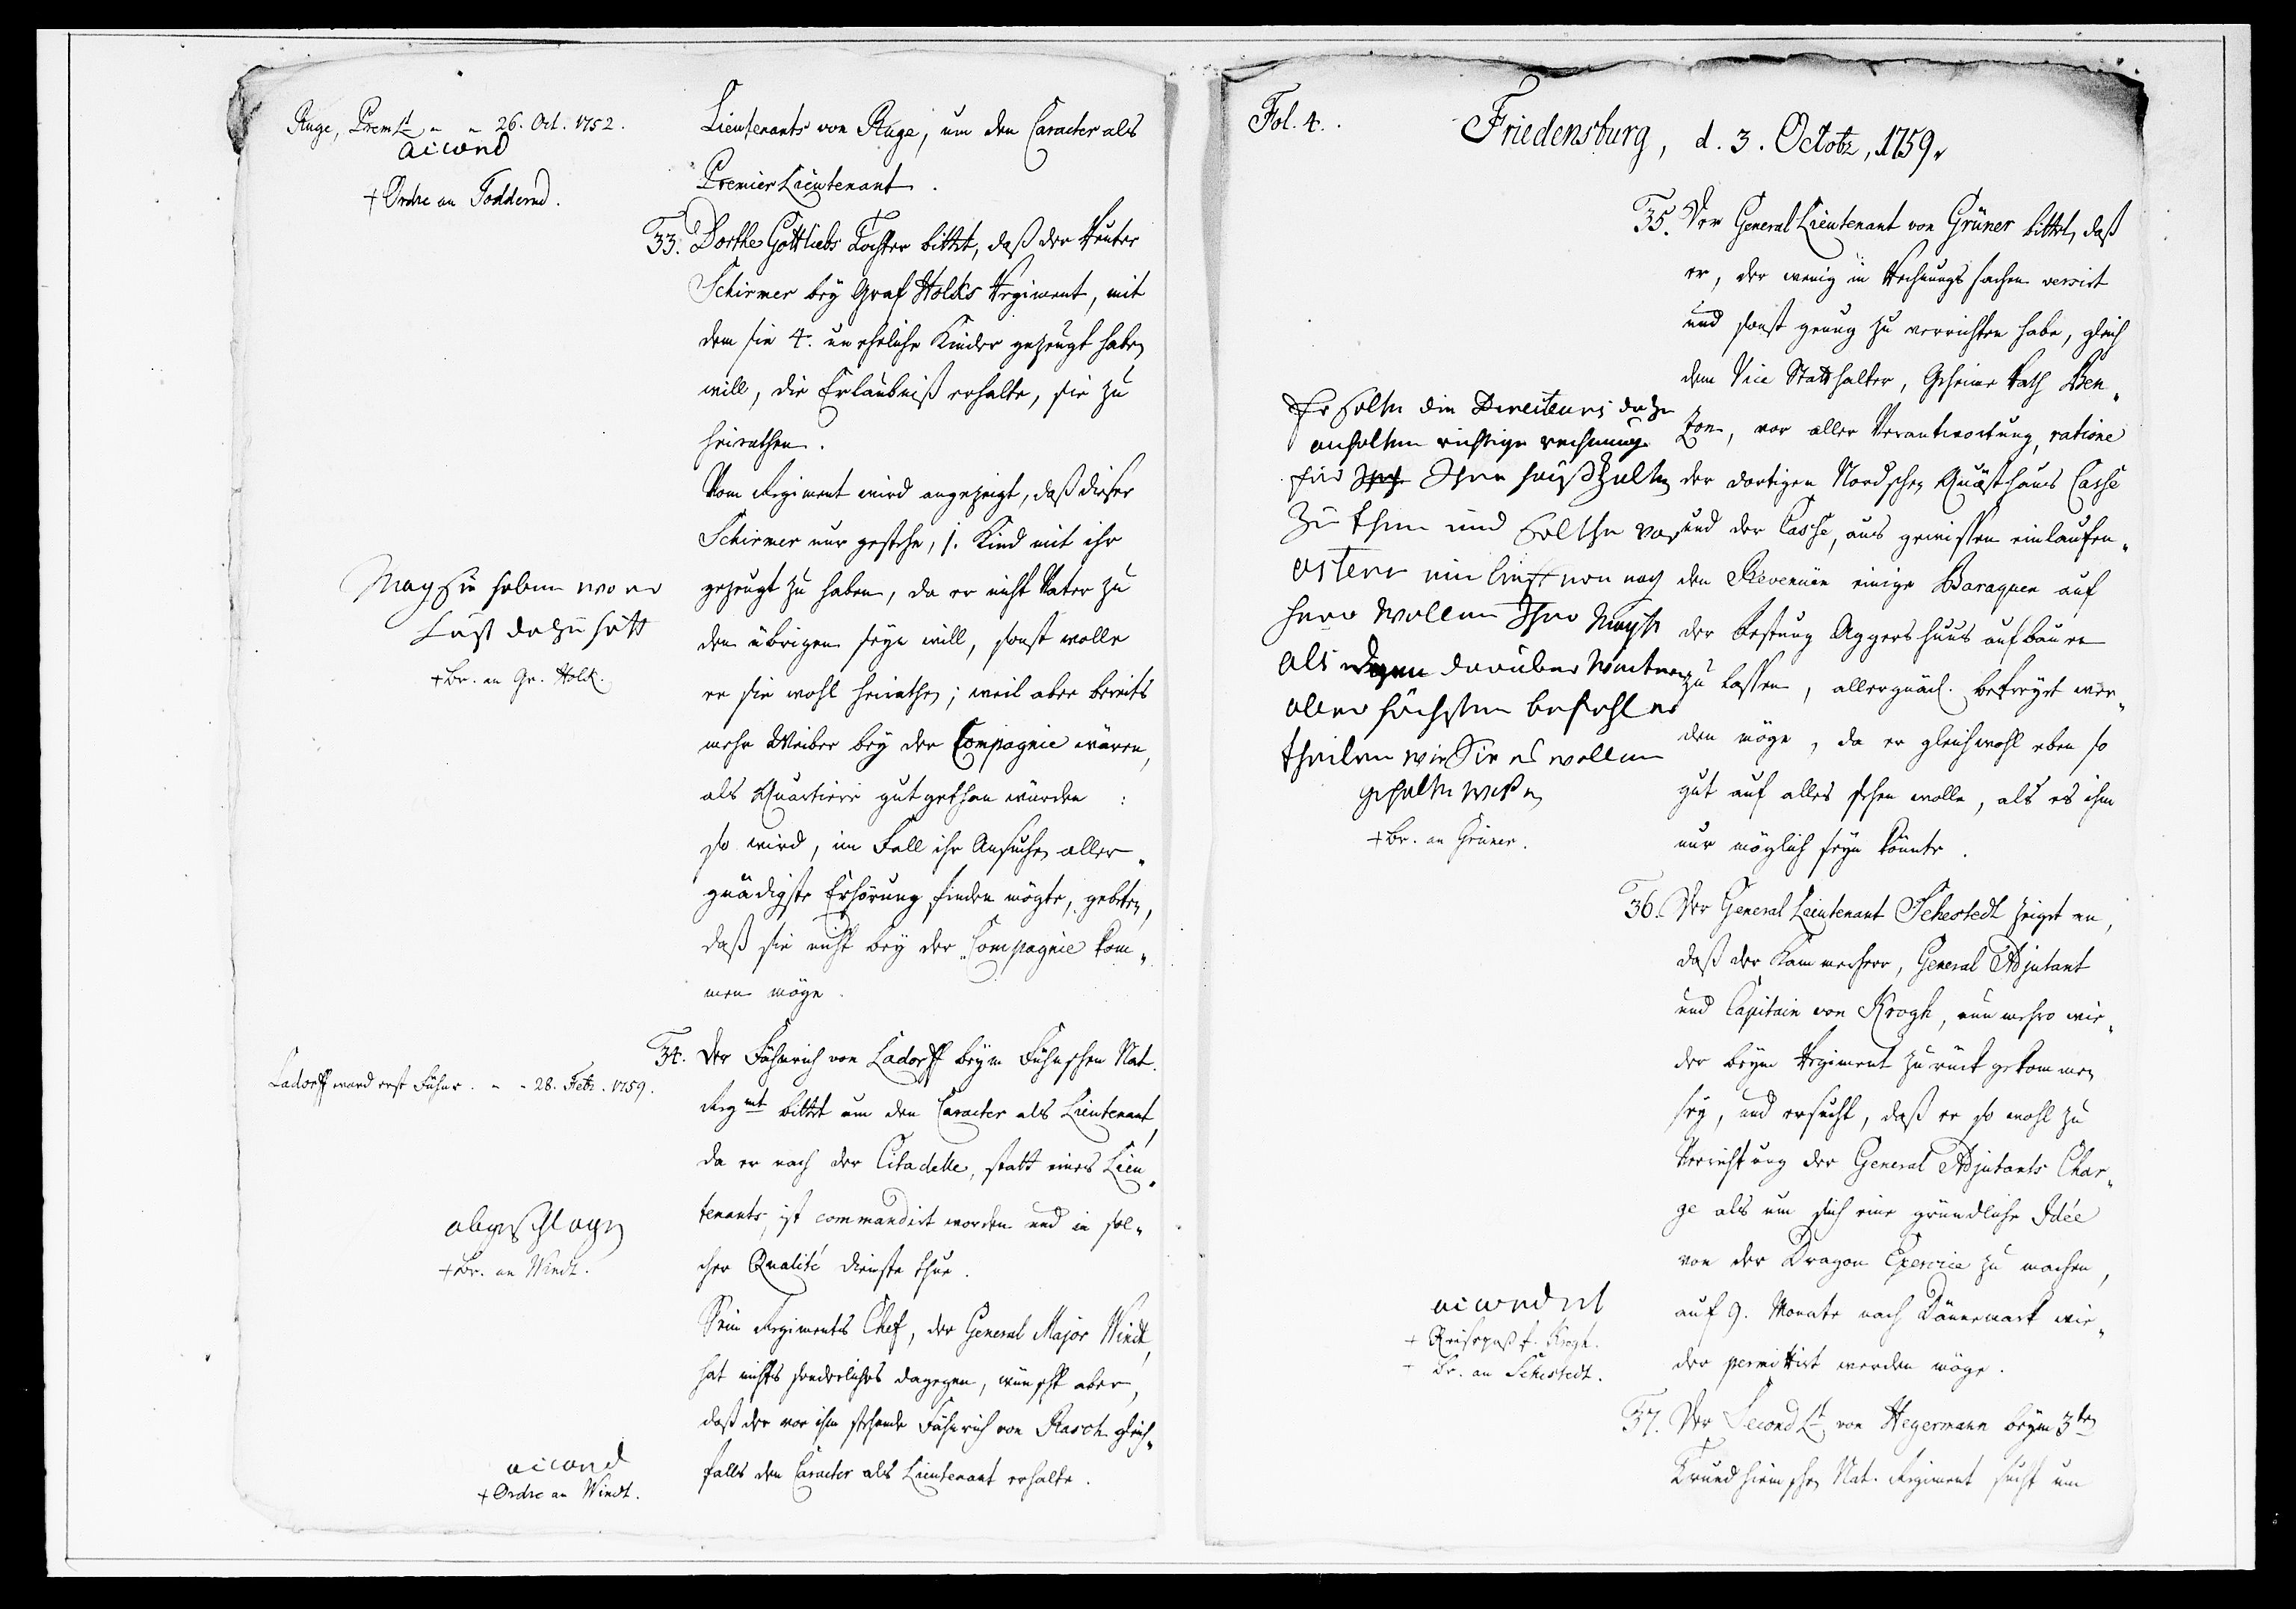 Ruge, Prem Lt - - 26. Oct. 1752.
accord
+ Ordre an Fodderud.
Lieutenants von Ruge, um den Caracter als
Premier Lieutenant.
33. Dorthe Gottliebs Tochter bittet, daß der Reuter
Schirmer bey Graf Holks Regiment, mit
dem sie 4. uneheliche Kinder gezeugt haben
will, die Erlaubniß erhalte, sie zu
heirathen.
Vom Regiment wird angezeigt, daß dieser
Schirmer nur gestehe, 1. Kind mit ihr
gezeugt zu haben, da er nicht Vater zu
den übrigen seyn will, sonst wolle
er sie wohl heirathen; weil aber bereits
mehr Weiber bey der Compagnie wären,
als Quartiere gut gethan würden:
so wird, im Fall ihr Ansuchen aller„
gnädigste Erhörung finden mögte, gebeten,
daß sie nicht bey der Compagnie kom„
men möge.
Mag sie haben wo er
Lust dazu hatt
+ Br. an Gr. Holck.
34. Der Fähnrich von Ladorff beym Fühnschen Nat.
Regmt bittet um den Caracter als Lieutenant,
da er nach der Citadelle, statt eines Lieu„
tenants, ist commandirt worden und in sol„
cher Qualité Dienste thue.
Ladorff ward erst Fähnr. - - 28. Febr. 1759.
abgeschlagen
+ Br. an Windt.
Sein Regiments Chef, der General Major Windt,
hat nichts sonderliches dagegen, wünscht aber,
daß der vor ihm stehende Fähnrich von Rasch gleich„
falls den Caracter als Lieutenant erhalte.
accord
+ Ordre an Windt.
Fol. 4.
Friedensburg, d. 3. Octobr, 1759.
35. Der General Lieutenant von Grüner bittet, daß
er, der wenig in Rechnungs sachen versirt
und sonst genug zu verrichten habe, gleich
dem Vice Statthalter, Geheime Rath Ben„
zon, vor aller Verantwortung, ratione
der dortigen Nordschen Quästhaus Casse
und der Casse, aus gewissen einlaufen„
den Revenüen einige Baraquen auf
der Vestung Aggershuus aufbauen
zu lassen, allergnäd. befreyet wer„
den möge, da er gleichwohl eben so
gut auf alles sehen wolle, als es ihm
nur möglich seyn könnte.
Er solte die Directeurs dazu
anhalten richtige rechnung
für Ihre haußhalten
zu thun und solche vor
ostern einliefferen nach
hero wollen Ihro Mayst
als dann darüber weitere
aller höchsten befehl er
theilen wie Sie es wollen
gehalten wißen
+ Br. an Grüner.
36. Der General Lieutenant Sehestedt zeiget an,
daß der Kammerherr, General Adjutant
und Capitain von Krogh, nunmehro wie„
der beym Regiment zurück gekommen
sey, und ersucht, daß er so wohl zu
Verrichtung der General Adjutants Char„
ge als um sich eine gründliche Idée
von der Dragon Exercice zu machen,
auf 9. Monate nach Dännemark wie„
der permittirt werden möge.
accordert
+ Reisepaß f. Krogh.
+ Br. an Sehestedt.
37. Der Second Lt von Hegermann beym 3ten
Trundhiemschen Nat. Regiment sucht um